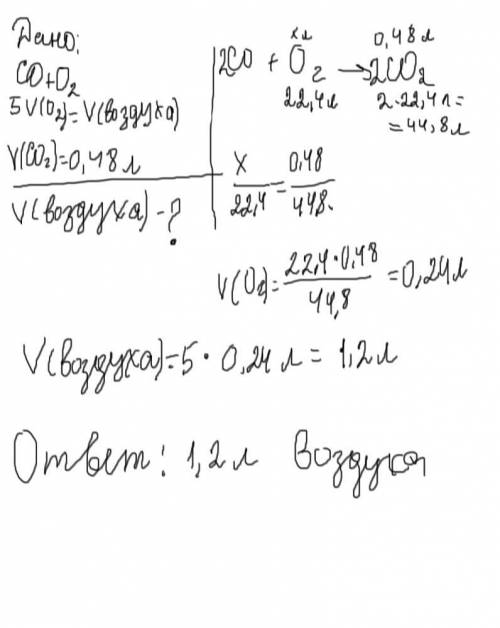 Дано:
CO+O₂
5V(O₂)=V(воздуха)
V(CO₂)=0,48 л
V(воздуха)-?
x л 0,48 л
2CO + O₂ → 2CO₂
22,4 л 2·22,4 л=
=44,8 л
x/22,4 = 0,48/448.
V(O₂)= 22,4·0,48/44,8 =0,24 л
V(воздуха)=5 · 0,24 л = 1,2 л
Ответ: 1,2 л воздуха